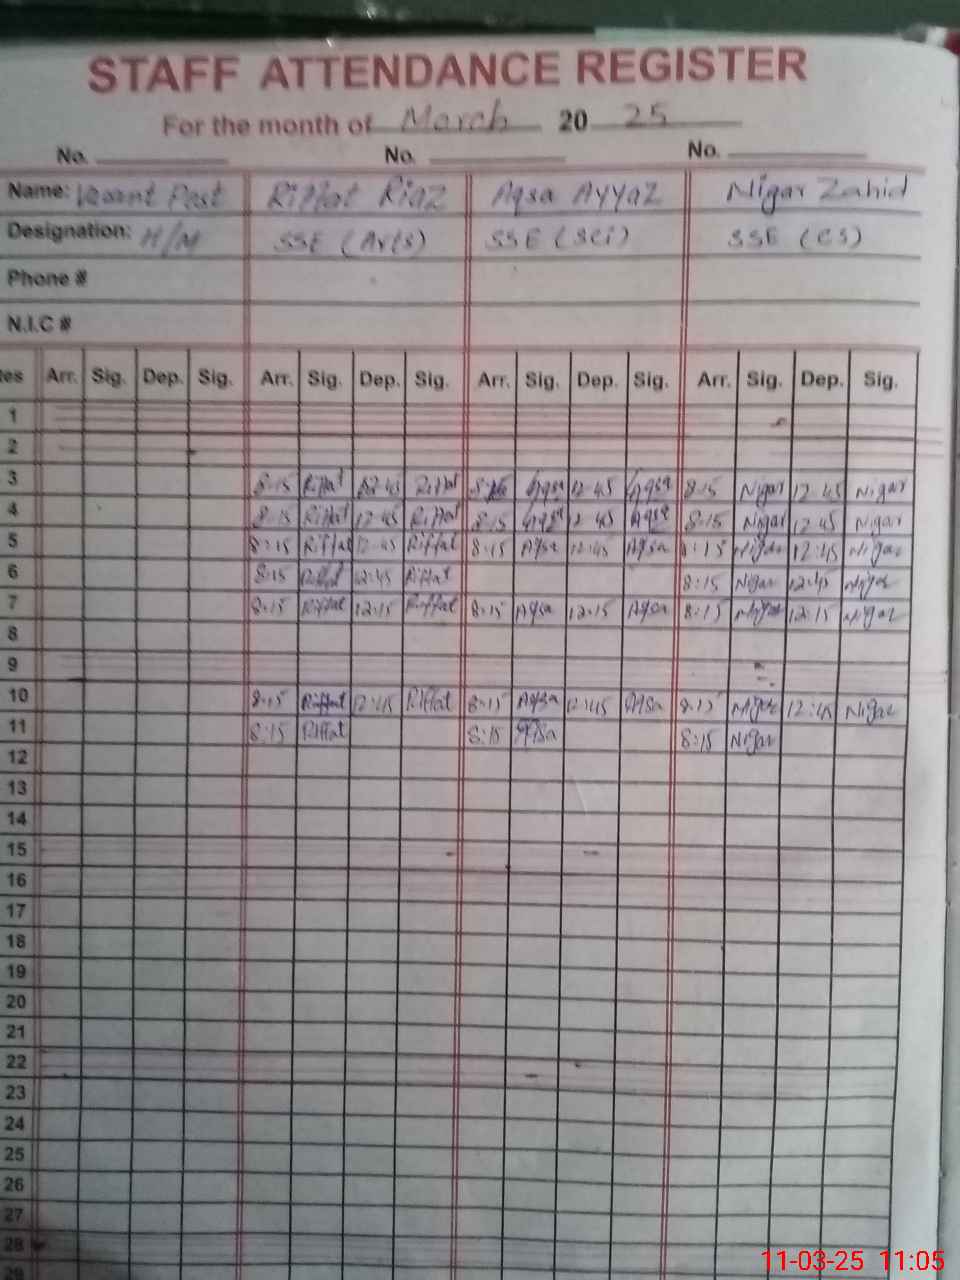 STAFF ATTENDANCE REGISTER
For the month of March 20 25
No. No. No.
Name: Vacant Post Riffat Riaz Aqsa Ayyaz Nigar Zahid
Designation: H/M SSE (Arts) SSE (Sci) SSE (CS)
Phone #
N.I.C #
tes Arr. Sig. Dep. Sig. Arr. Sig. Dep. Sig. Arr. Sig. Dep. Sig. Arr. Sig. Dep. Sig.
1
2
3 8:15 Riffat 12:45 Riffat 8:15 Aqsa 12:45 Aqsa 8:15 Nigar 12:45 Nigar
4 8:15 Riffat 12:45 Riffat 8:15 Aqsa 12:45 Aqsa 8:15 Nigar 12:45 Nigar
5 8:15 Riffat 12:45 Riffat 8:15 Aqsa 12:45 Aqsa 8:15 Nigar 12:45 Nigar
6 8:15 Riffat 12:45 Riffat 8:15 Nigar 12:45 Nigar
7 8:15 Riffat 12:15 Riffat 8:15 Aqsa 12:15 Aqsa 8:15 Nigar 12:15 Nigar
8
9
10 8:15 Riffat 12:45 Riffat 8:15 Aqsa 12:45 Aqsa 8:15 Nigar 12:45 Nigar
11 8:15 Riffat 8:15 Aqsa 8:15 Nigar
12
13
14
15
16
17
18
19
20
21
22
23
24
25
26
27
28
29
11-03-25 11:05